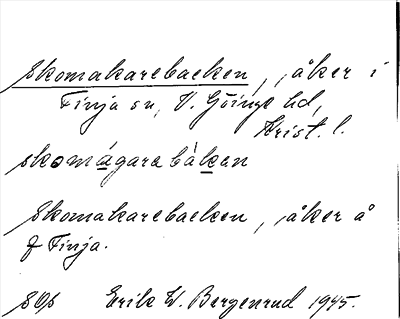 Skomakarebacken, åker i
Finja sn, V. Göinge hd,
Krist. l.
skomågarabàkan
Skomakarebacken, åker å
Finja.
Erik W. Bergenrud 1945.